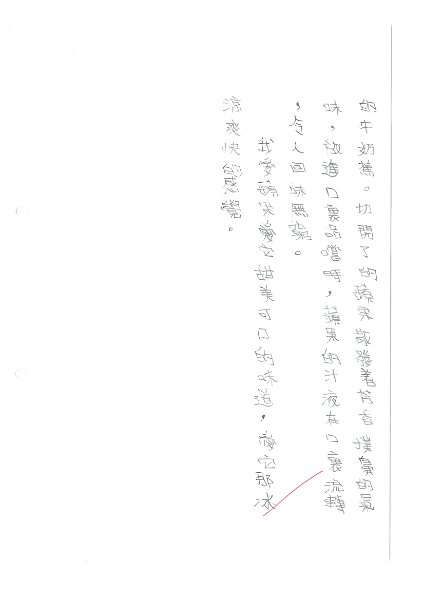 的牛奶蕉。切開了的蘋果散發着芳香撲鼻的氣
味，放進口裏品嚐時，蘋果的汁液在口裏流轉
，令人回味無窮。
我愛蘋果，愛它甜美可口的味道，愛它那冰
涼爽快的感覺。